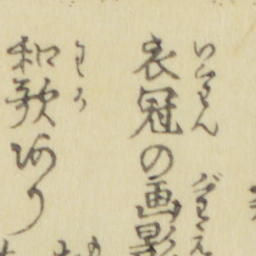 衣冠の画影
いくわん ぐわゑ
和歌あり
わか